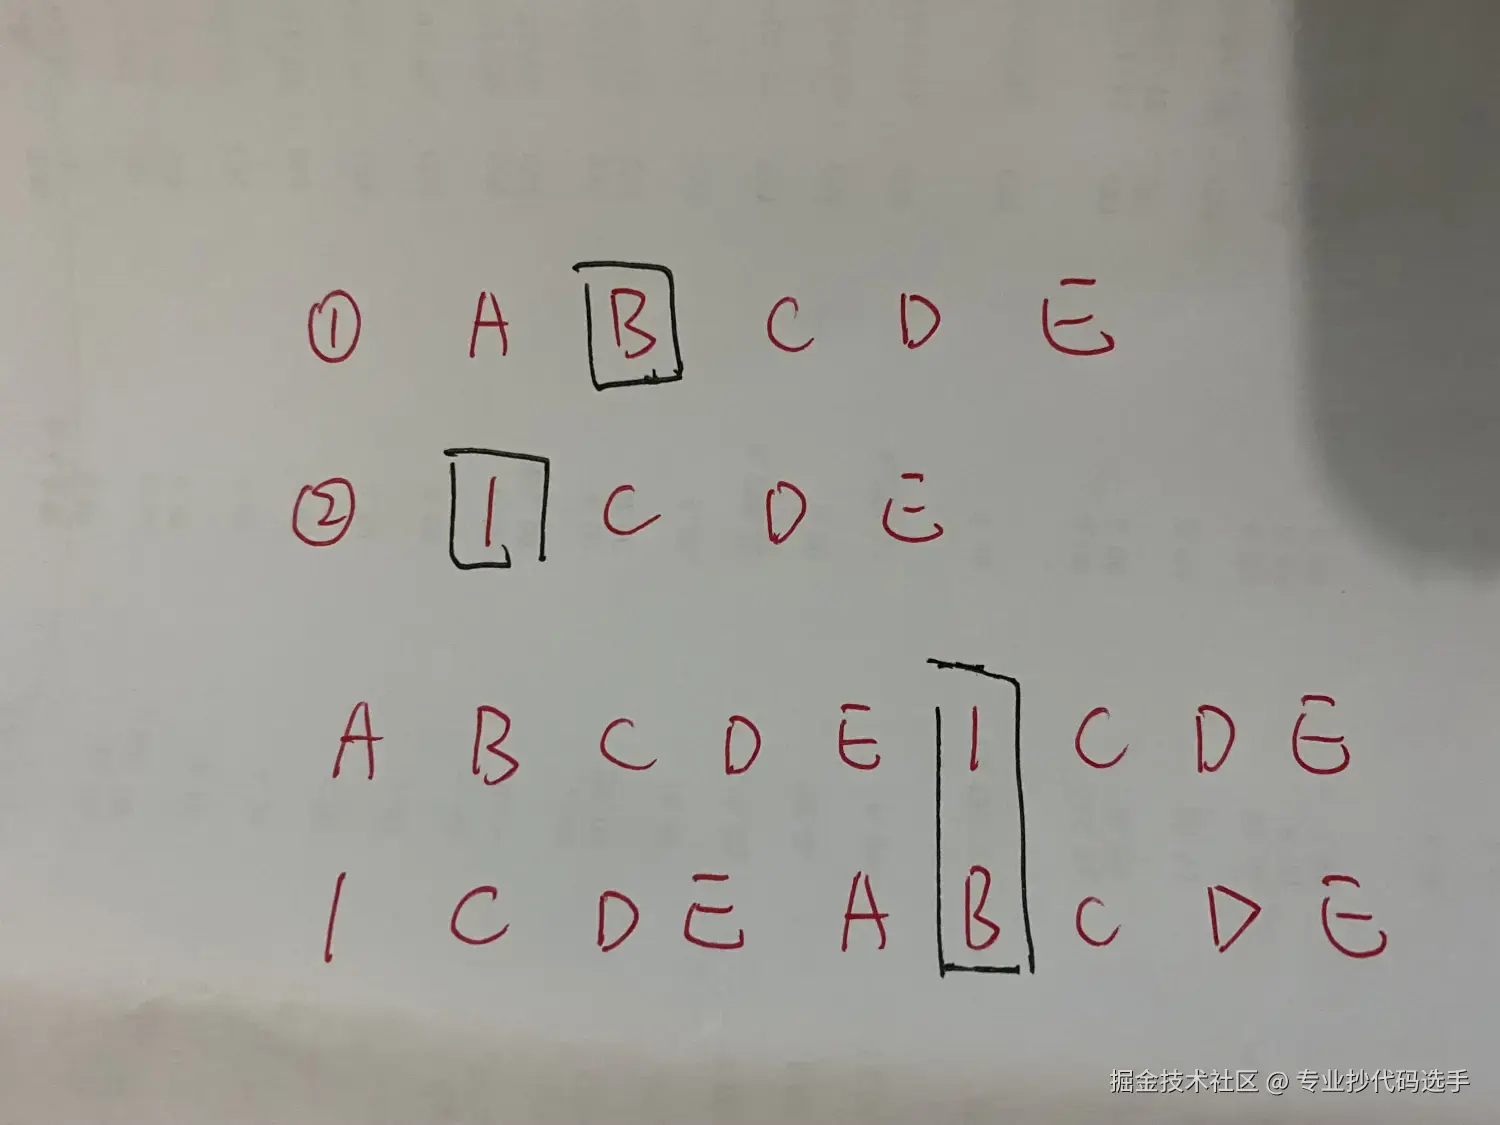 ① A B C D E
② 1 C D E
A B C D E 1 C D E
1 C D E A B C D E
掘金技术社区 @ 专业抄代码选手